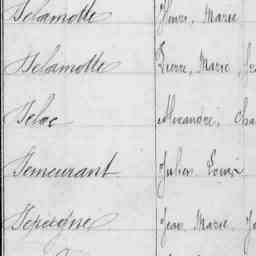 Delamotte Henri, Marie
Delamotte Pierre, Marie,
Delac Alexandre, Cha
Demeurant Julien Louis
Depeigne Jean Marie Jo